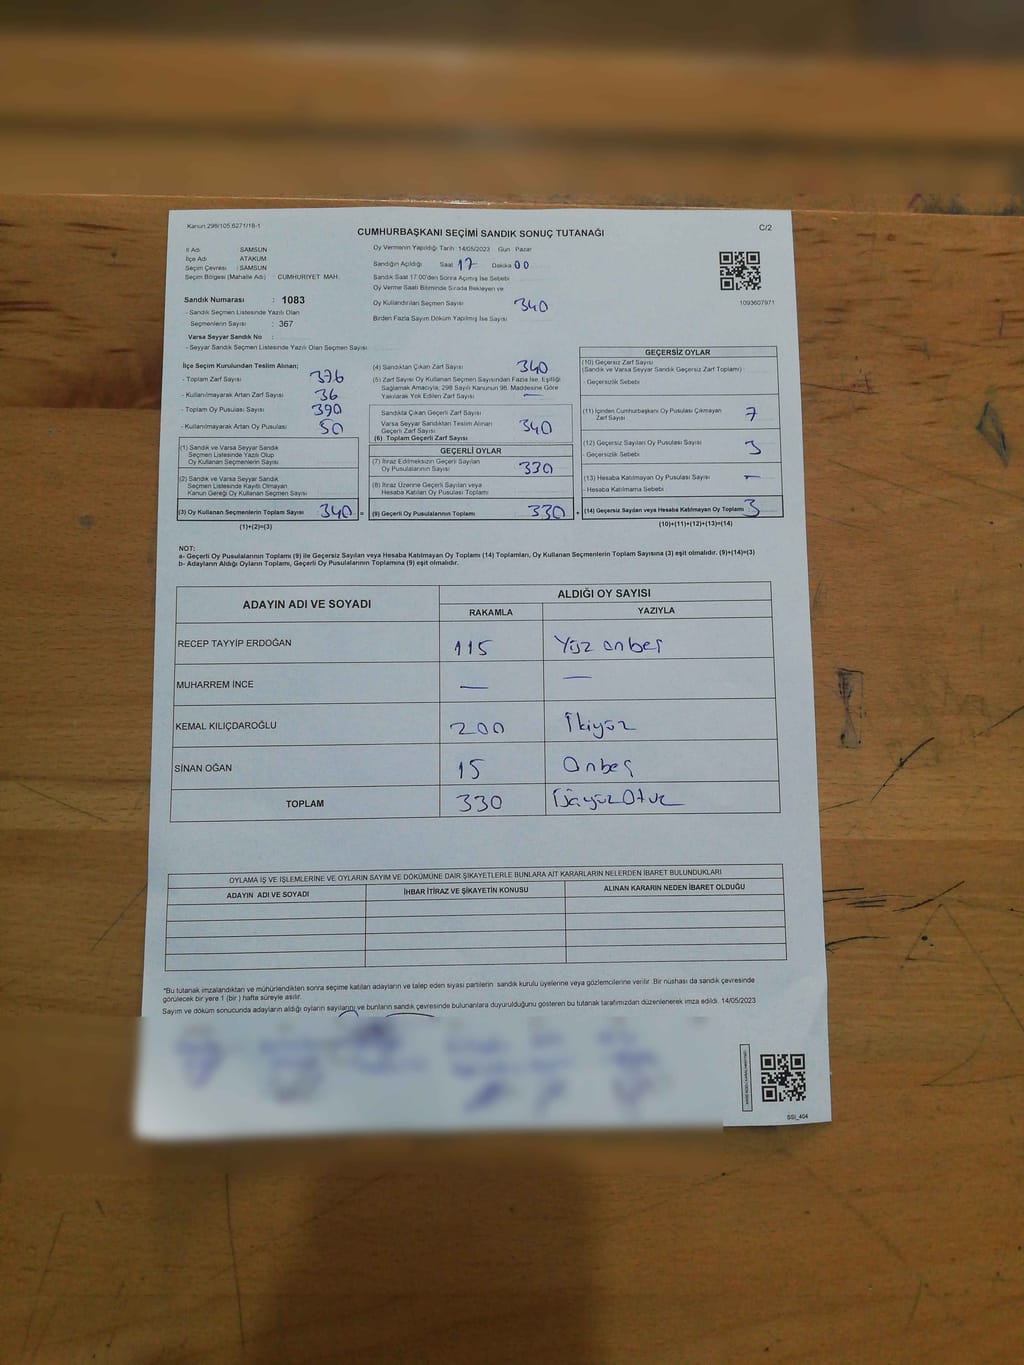 Kanun:298/105,6271/18-1
C/2
CUMHURBAŞKANI SEÇİMİ SANDIK SONUÇ TUTANAĞI
İl Adı SAMSUN
İlçe Adı ATAKUM
Seçim Çevresi : SAMSUN
Seçim Bölgesi (Mahalle Adı) : CUMHURIYET MAH.
Sandık Numarası : 1083
- Sandık Seçmen Listesinde Yazılı Olan
Seçmenlerin Sayısı : 367
Varsa Seyyar Sandık No :
- Seyyar Sandık Seçmen Listesinde Yazılı Olan Seçmen Sayısı:
Oy Vermenin Yapıldığı Tarih : 14/05/2023 Gün : Pazar
Sandığın Açıldığı Saat 17 Dakika 00
Sandık Saat 17:00'den Sonra Açılmış İse Sebebi
Oy Verme Saati Bitiminde Sırada Bekleyen ve
Oy Kullandırılan Seçmen Sayısı 340
Birden Fazla Sayım Döküm Yapılmış İse Sayısı
1093607971
İlçe Seçim Kurulundan Teslim Alınan;
- Toplam Zarf Sayısı 376
- Kullanılmayarak Artan Zarf Sayısı 36
- Toplam Oy Pusulası Sayısı 390
- Kullanılmayarak Artan Oy Pusulası 50
(1) Sandık ve Varsa Seyyar Sandık
Seçmen Listesinde Yazılı Olup
Oy Kullanan Seçmenlerin Sayısı
(2) Sandık ve Varsa Seyyar Sandık
Seçmen Listesinde Kayıtlı Olmayan
Kanun Gereği Oy Kullanan Seçmen Sayısı
(3) Oy Kullanan Seçmenlerin Toplam Sayısı 340 =
(1)+(2)=(3)
(4) Sandıktan Çıkan Zarf Sayısı 340
(5) Zarf Sayısı Oy Kullanan Seçmen Sayısından Fazla İse, Eşitliği
Sağlamak Amacıyla, 298 Sayılı Kanunun 98. Maddesine Göre
Yakılarak Yok Edilen Zarf Sayısı —
Sandıkta Çıkan Geçerli Zarf Sayısı
Varsa Seyyar Sandıktan Teslim Alınan
Geçerli Zarf Sayısı 340
(6) Toplam Geçerli Zarf Sayısı
GEÇERLİ OYLAR
(7) İtiraz Edilmeksizin Geçerli Sayılan
Oy Pusulalarının Sayısı 330
(8) İtiraz Üzerine Geçerli Sayılan veya
Hesaba Katılan Oy Pusulası Toplamı
(9) Geçerli Oy Pusulalarının Toplamı 330 +
GEÇERSİZ OYLAR
(10) Geçersiz Zarf Sayısı
(Sandık ve Varsa Seyyar Sandık Geçersiz Zarf Toplamı)
- Geçersizlik Sebebi
(11) İçinden Cumhurbaşkanı Oy Pusulası Çıkmayan
Zarf Sayısı 7
(12) Geçersiz Sayılan Oy Pusulası Sayısı 3
- Geçersizlik Sebebi
(13) Hesaba Katılmayan Oy Pusulası Sayısı —
- Hesaba Katılmama Sebebi
(14) Geçersiz Sayılan veya Hesaba Katılmayan Oy Toplamı 3
(10)+(11)+(12)+(13)=(14)
NOT:
a- Geçerli Oy Pusulalarının Toplamı (9) ile Geçersiz Sayılan veya Hesaba Katılmayan Oy Toplamı (14) Toplamları, Oy Kullanan Seçmenlerin Toplam Sayısına (3) eşit olmalıdır. (9)+(14)=(3)
b- Adayların Aldığı Oyların Toplamı, Geçerli Oy Pusulalarının Toplamına (9) eşit olmalıdır.
ADAYIN ADI VE SOYADI ALDIĞI OY SAYISI
RAKAMLA YAZIYLA
RECEP TAYYİP ERDOĞAN 115 Yüz onbeş
MUHARREM İNCE — —
KEMAL KILIÇDAROĞLU 200 İkiyüz
SİNAN OĞAN 15 Onbeş
TOPLAM 330 Üçyüz Otuz
OYLAMA İŞ VE İŞLEMLERİNE VE OYLARIN SAYIM VE DÖKÜMÜNE DAİR ŞİKAYETLERLE BUNLARA AİT KARARLARIN NELERDEN İBARET BULUNDUKLARI
ADAYIN ADI VE SOYADI İHBAR İTİRAZ VE ŞİKAYETİN KONUSU ALINAN KARARIN NEDEN İBARET OLDUĞU
*Bu tutanak imzalandıktan ve mühürlendikten sonra seçime katılan adayların ve talep eden siyasi partilerin sandık kurulu üyelerine veya gözlemcilerine verilir. Bir nüshası da sandık çevresinde
görülecek bir yere 1 (bir ) hafta süreyle asılır.
Sayım ve döküm sonucunda adayların aldığı oyların sayılarını ve bunların sandık çevresinde bulunanlara duyurulduğunu gösteren bu tutanak tarafımızdan düzenlenerek imza edildi. 14/05/2023
SSI_404